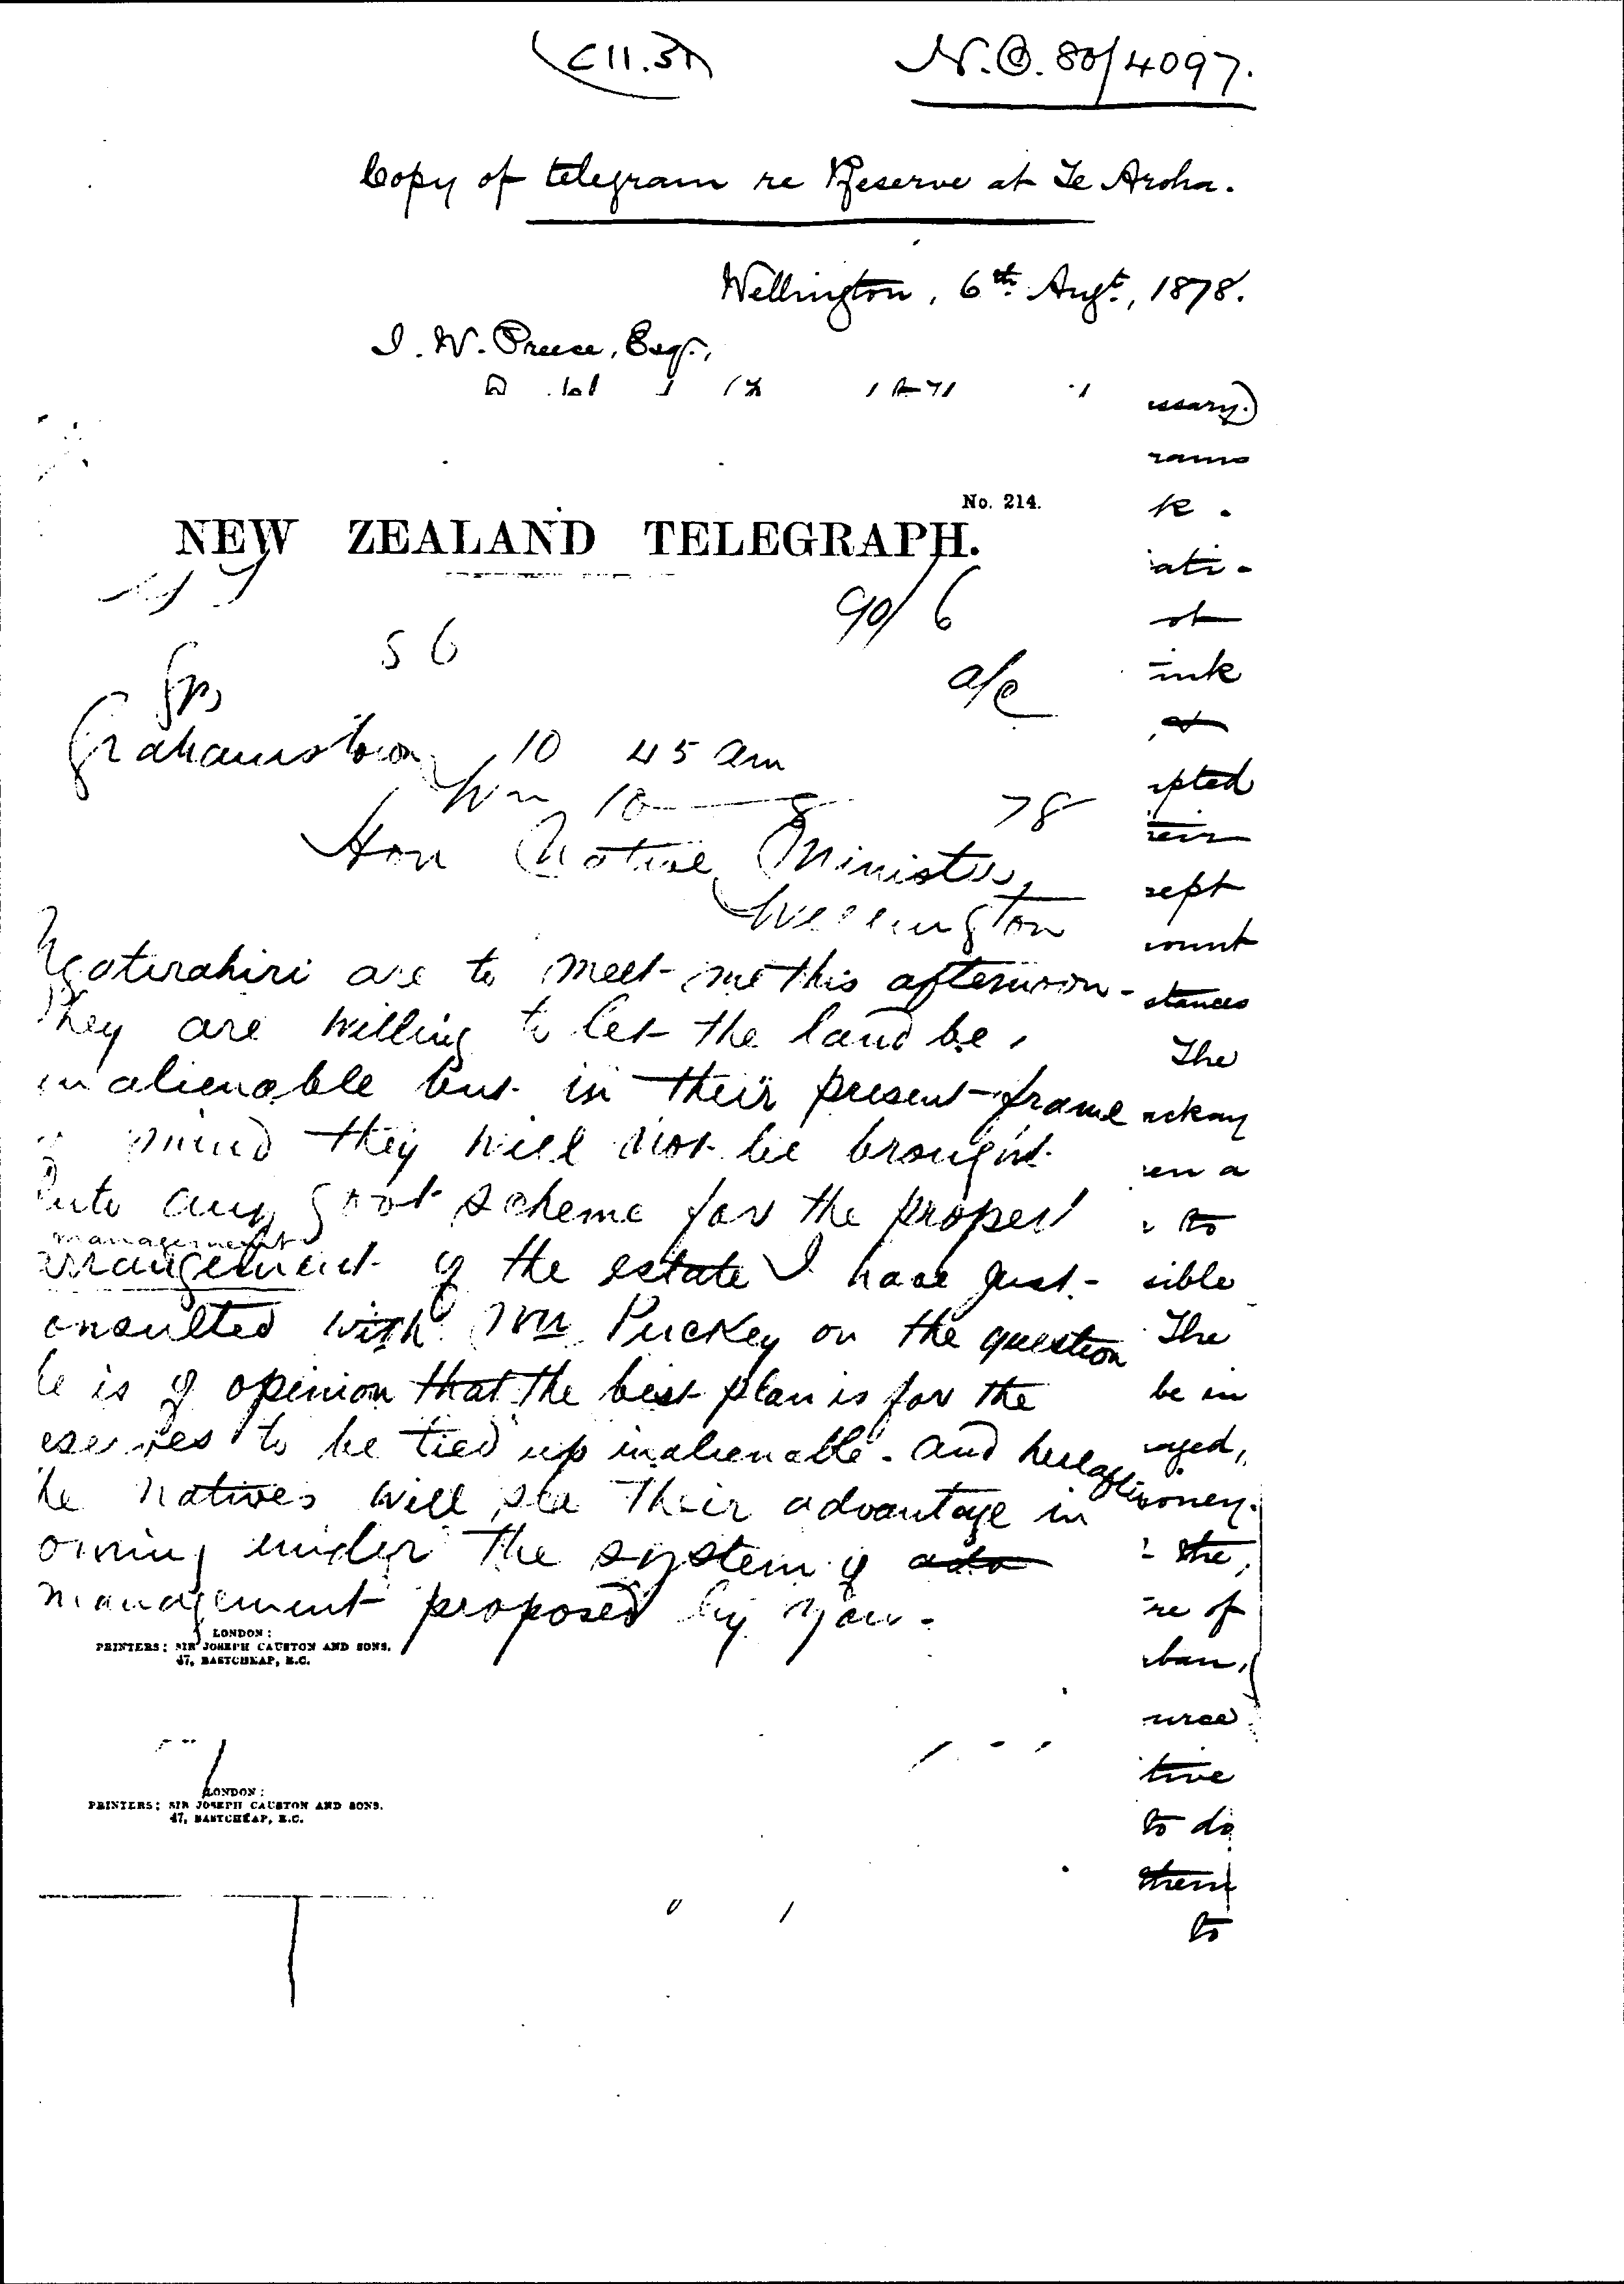 C11.31
N.O. 80/4097.
Copy of telegram re Reserve at Te Aroha.
Wellington, 6th Augt., 1878.
J. W. Preece, Esq.,
No. 214.
NEW ZEALAND TELEGRAPH.
56
90/6
a/c
Grahamstown 10 45 am
Wn 10 8 78
Hon Native Minister,
Wellington
Ngatirahiri are to meet me this afternoon -
They are willing to let the land be
inalienable but in their present frame
mind they will not be brought
into any good scheme for the proper
management
arrangement of the estate I have just
onsulted with Mr Puckey on the question
he is of opinion that the best plan is for the
eserves to be tied up inalienable. and hereafter
he natives will see their advantage in
oming under the system of
management proposed by you -
LONDON:
PRINTERS: SIR JOSEPH CAUSTON AND SONS.
47, EASTCHEAP, E.C.
LONDON:
PRINTERS: SIR JOSEPH CAUSTON AND SONS.
47, EASTCHEAP, E.C.
essary.)
rams
k.
ati-
ot
ink
at
pted
eir
sept
ount
stances
The
ackay
en a
to
sible
The
be in
aged,
oney.
the,
re of
ban,
urce
tive
to do
them
to